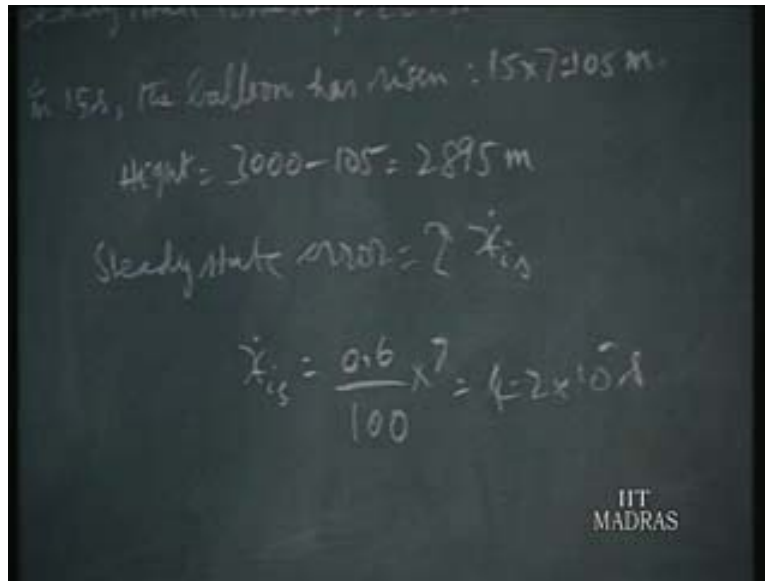 In 15s, the balloon has risen : 15x7=105 m.
Hight = 3000-105 = 2895 m
Steady state error = τ ẋis
ẋis = 0.6/100 x7 = 4.2x10
IIT
MADRAS